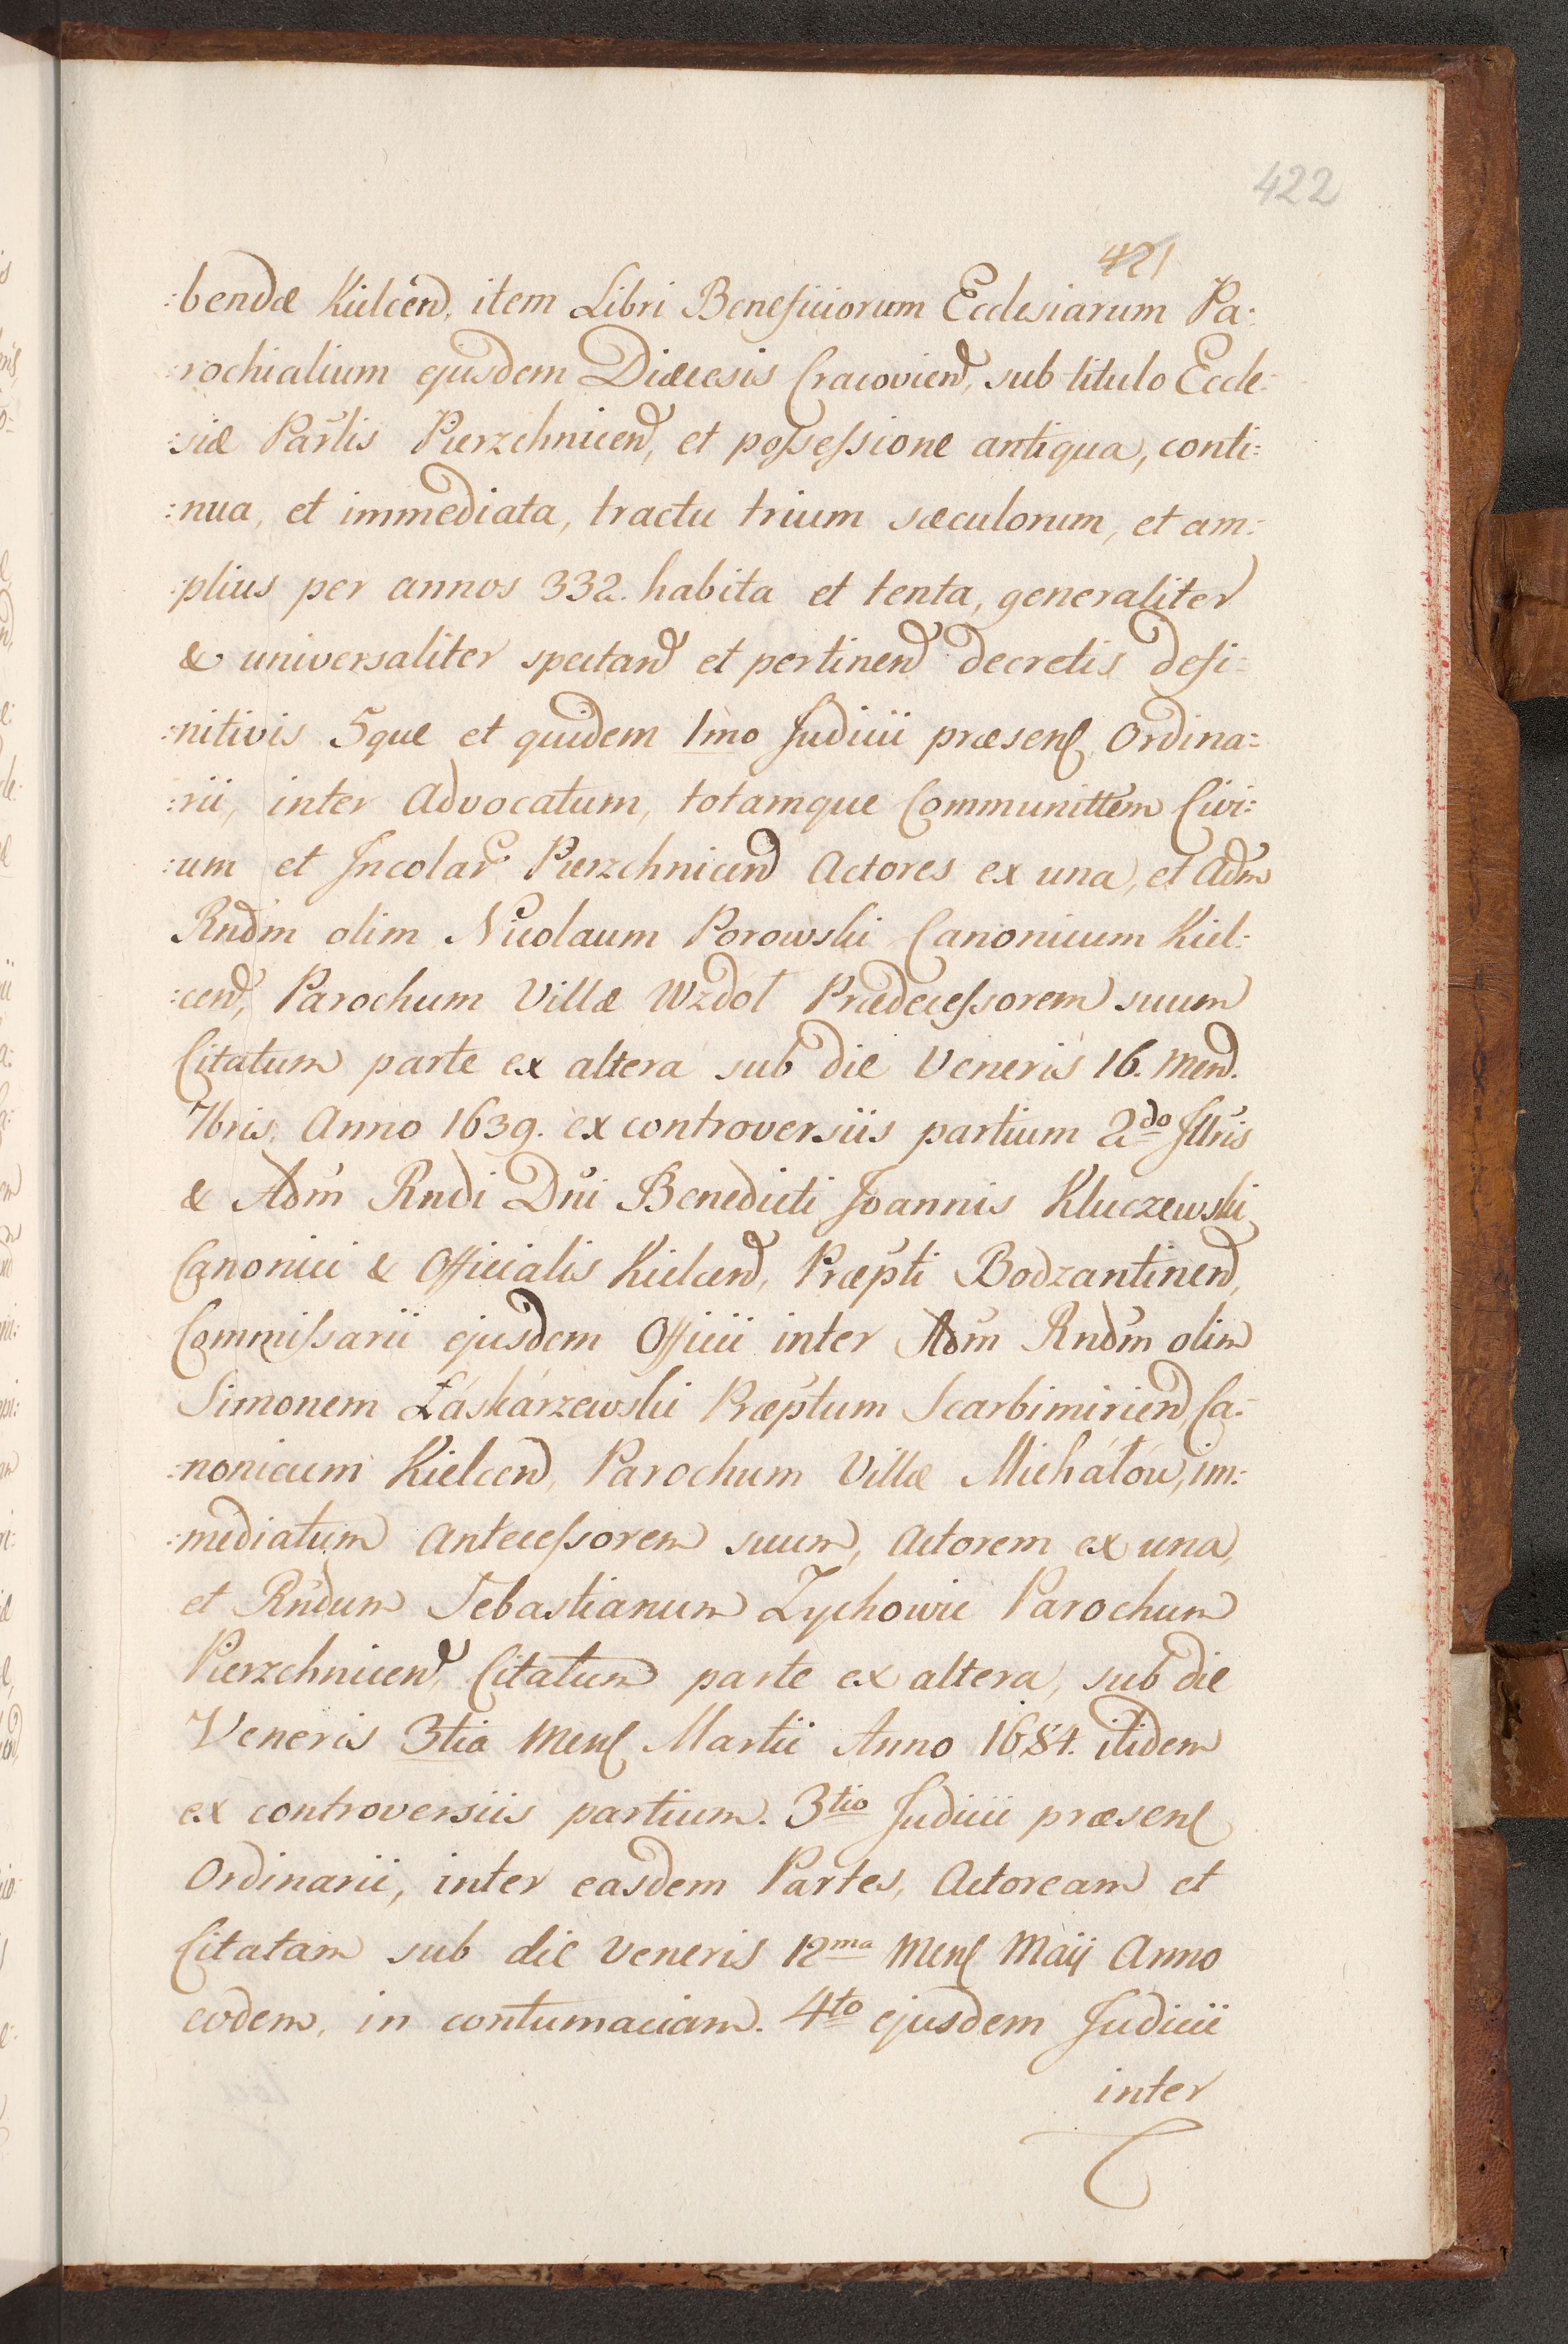 422
421
:bendæ Kielcen, item Libri Beneficiorum Ecclesiarum Pa:
:rochialium ejusdem Diæcesis Cracovien, sub titulo Eccle:
:siæ Parlis Pierzchnicen, et possessione antiqua, conti:
:nua, et immediata, tractu trium sæculorum, et am:
:plius per annos 332. habita et tenta, generaliter
& universaliter spectan et pertinen decretis defi:
:nitivis 5que et quidem 1mo Judicii præsens Ordina:
:rii, inter Advocatum, totamque Communittem Civi:
:um et Incolar Pierzchnicen Actores ex una, et Adm
Rndm olim Nicolaum Porowski Canonicum Kiel:
:cen, Parochum Villæ Wzdoł Prædecessorem suum
Citatum parte ex altera sub die Veneris 16. Men.
7bris. Anno 1639. ex controversiis partium 2do Jllris
& Adm Rndi Dni Benedicti Joannis Kluczewski
Canonici & Officialis Kielcen, Præpti Bodzantinen,
Commissarii ejusdem Officii inter Adm Rndm olim
Simonem Łáskárzewski Præptum Scarbimirien Ca:
:nonicum Kielcen, Parochum Villæ Micháłów, im:
:mediatum Antecessorem suum, Actorem ex una,
et Rndum Sebastianum Zychowic Parochum
Pierzchnicen, Citatum parte ex altera, sub die
Veneris 3tia Mens Martii Anno 1684. itidem
ex controversiis partium. 3tio Judicii præsens
Ordinarii, inter easdem Partes, Actoream et
Citatam sub die Veneris 12ma Mens Maij Anno
eodem, in contumaciam. 4to ejusdem Judicii
inter